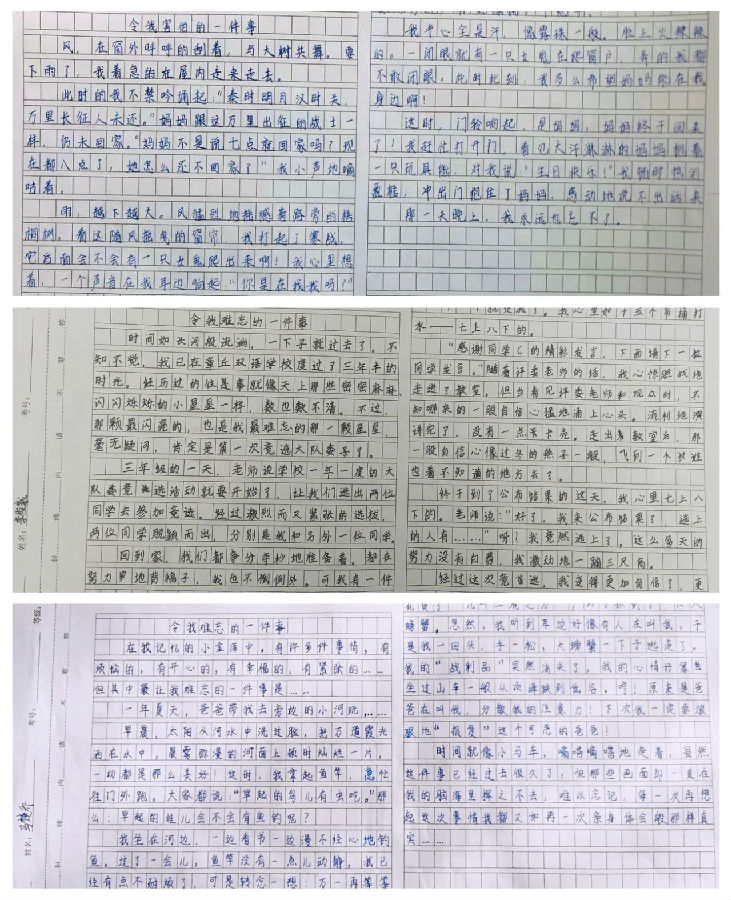 令我害怕的一件事
风，在窗外呼呼的刮着，与大树共舞。要
下雨了，我着急的在屋内走来走去。
此时的我不禁吟诵起：“秦时明月汉时关，
万里长征人未还。”妈妈跟这万里出征的战士一
样，仍未回家。“妈妈不是说七点就回家吗？现
在都八点了，她怎么还不回家了”我小声地嘀
咕着。
雨，越下越大。风猛烈地摇撼着路旁的梧
桐树。看这随风摇曳的窗帘，我打起了寒战，
它后面会不会有一只女鬼爬出来啊！我心里想
着，一个声音在我耳边响起“你是在找我吗？”
我手心全是汗，像露珠一般。脸上火辣辣
的。一闭眼就有一只女鬼在爬窗户，弄的我都
不敢闭眼，此时此刻，我多么希望妈妈能在我
身边啊！
这时，门铃响起，是妈妈，妈妈终于回来
了！我赶忙打开门，看见大汗淋淋的妈妈抱着
一只玩具熊，对我说：“生日快乐！”我顿时热泪
盈眶，冲出门抱住了妈妈，感动地说不出话来
那一天晚上，我永远也忘不了。
令我难忘的一件事
时间如长河般流淌。一下子就过去了。不
知不觉，我已在章丘双语学校度过了三年半的
时光。经历过的往事就像天上那些密密麻麻、
闪闪烁烁的小星星一样，数也数不清。不过，
那颗最闪亮的，也是我最难忘的那一颗星星，
毫无疑问，肯定是第一次竞选大队委员了。
三年级的一天，老师说学校一年一度的大
队委竞选活动就要开始了，让我们选出两位
同学去参加竞选。经过激烈而又紧张的选拔，
两位同学脱颖而出，分别是我和另外一位同学。
回到家，我们都争分夺秒地准备着。都在
努力地背稿子，我也不例外。可我有一件
水——七上八下的。
“感谢同学C的精彩发言，下面请下一位
同学发言。”随着评委老师的话，我心惊胆战地
走进了教室。但当看见评委老师和观众时，不
知哪来的一股自信心猛地涌上心头。流利地演
讲完了，没有一点卡克。走出教室后，那
一股自信心像过冬的燕子一般，飞到一个谁
也看不知道的地方去了。
终于到了公布结果的这天，我心里七上八
下的。老师说：“好了，我来公布结果了，选上
的人有……”呀！我竟然选上了。这么多天的
努力没有白费，我激动地一蹦三尺高。
经过这次竞选，我变得更加自信了，更
令我难忘的一件事
在我记忆的小金库中，有许多件事情，有
烦恼的，有开心的，有幸福的，有紧张的……
但其中最让我难忘的一件事是……
一年夏天，爸爸带我去旁边的小河玩……
早晨，太阳从河水中洗过脸，把万道霞光
洒在水中，晨雾弥漫的河面上顿时灿烂一片，
一切都是那么美好！这时，我拿起鱼竿，急忙
往门外跑。大家都说“早起的鸟儿有虫吃。”那
么，早起的娃儿会不会有鱼钓呢？
我坐在河边，一边看书一边漫不经心地钓
鱼。过了一会儿，鱼竿没有一点儿动静，我已
经有点不耐烦了，可是转念一想：万一再等等
螃蟹。忽然，我听到耳边好像有人在叫我，于
是我一回头，手一松，大螃蟹一下子地走了。
我的“战利品”突然消失了，我的心情好像坐
坐过山车一般从顶峰跌到低谷。哼！原来是爸
爸在叫我，分散我的注意力！下次我一定要狠
狠地“报复”这个可恶的爸爸！
时间就像小马车，嘀嗒嘀嗒地走着，虽然
这件事已经过去很久了，但那些画面却一直在
我的脑海里挥之不去，难以忘记，每一次再想
起这次事情我都又如再一次亲身体会般那样真
实……
姓名：
考号：
姓名：
考号：